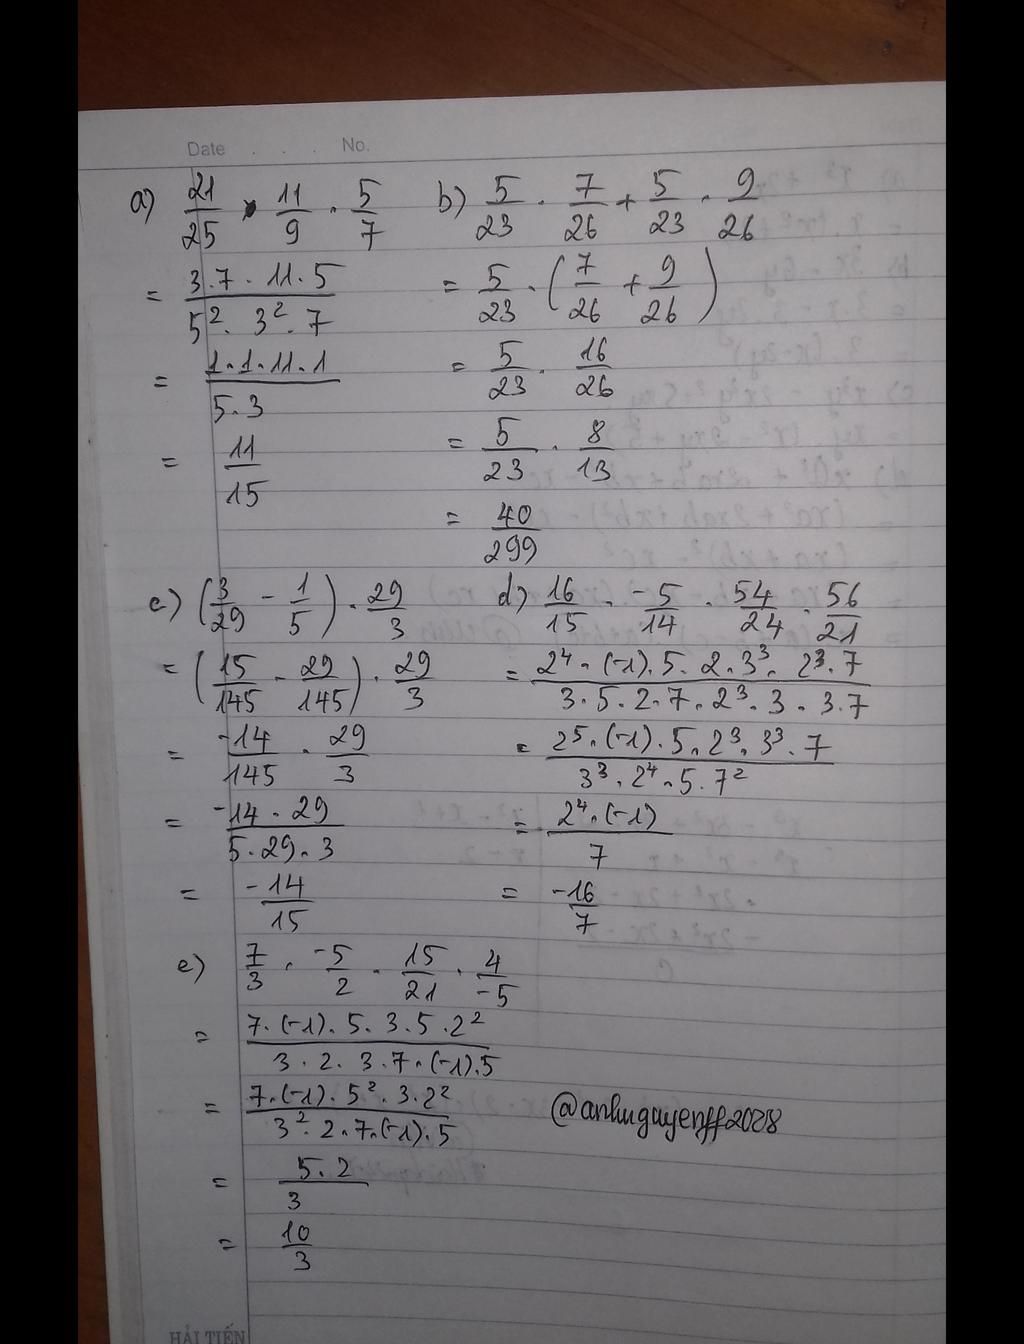 Date . . . No.
a) 21/25 . 11/9 . 5/7
= 3.7 . 11.5 / 5². 3². 7
= 1.1.11.1 / 5.3
= 11/15
b) 5/23 . 7/26 + 5/23 . 9/26
= 5/23 . (7/26 + 9/26)
= 5/23 . 16/26
= 5/23 . 8/13
= 40/299
c) (3/29 - 1/5) . 29/3
= (15/145 - 29/145) . 29/3
= -14/145 . 29/3
= -14 . 29 / 5.29.3
= -14/15
d) 16/15 . -5/14 . 54/24 . 56/21
= 2⁴ . (-1). 5. 2. 3³. 2³. 7 / 3.5.2.7.2³.3.3.7
= 2⁵.(-1).5.2³.3³.7 / 3³.2⁴.5.7²
= 2⁴.(-1) / 7
= -16/7
e) 7/3 . -5/2 . 15/21 . 4/-5
= 7.(-1).5.3.5.2² / 3.2.3.7.(-1).5
= 7.(-1).5².3.2² / 3².2.7.(-1).5
= 5.2 / 3
= 10/3
HẢI TIẾN